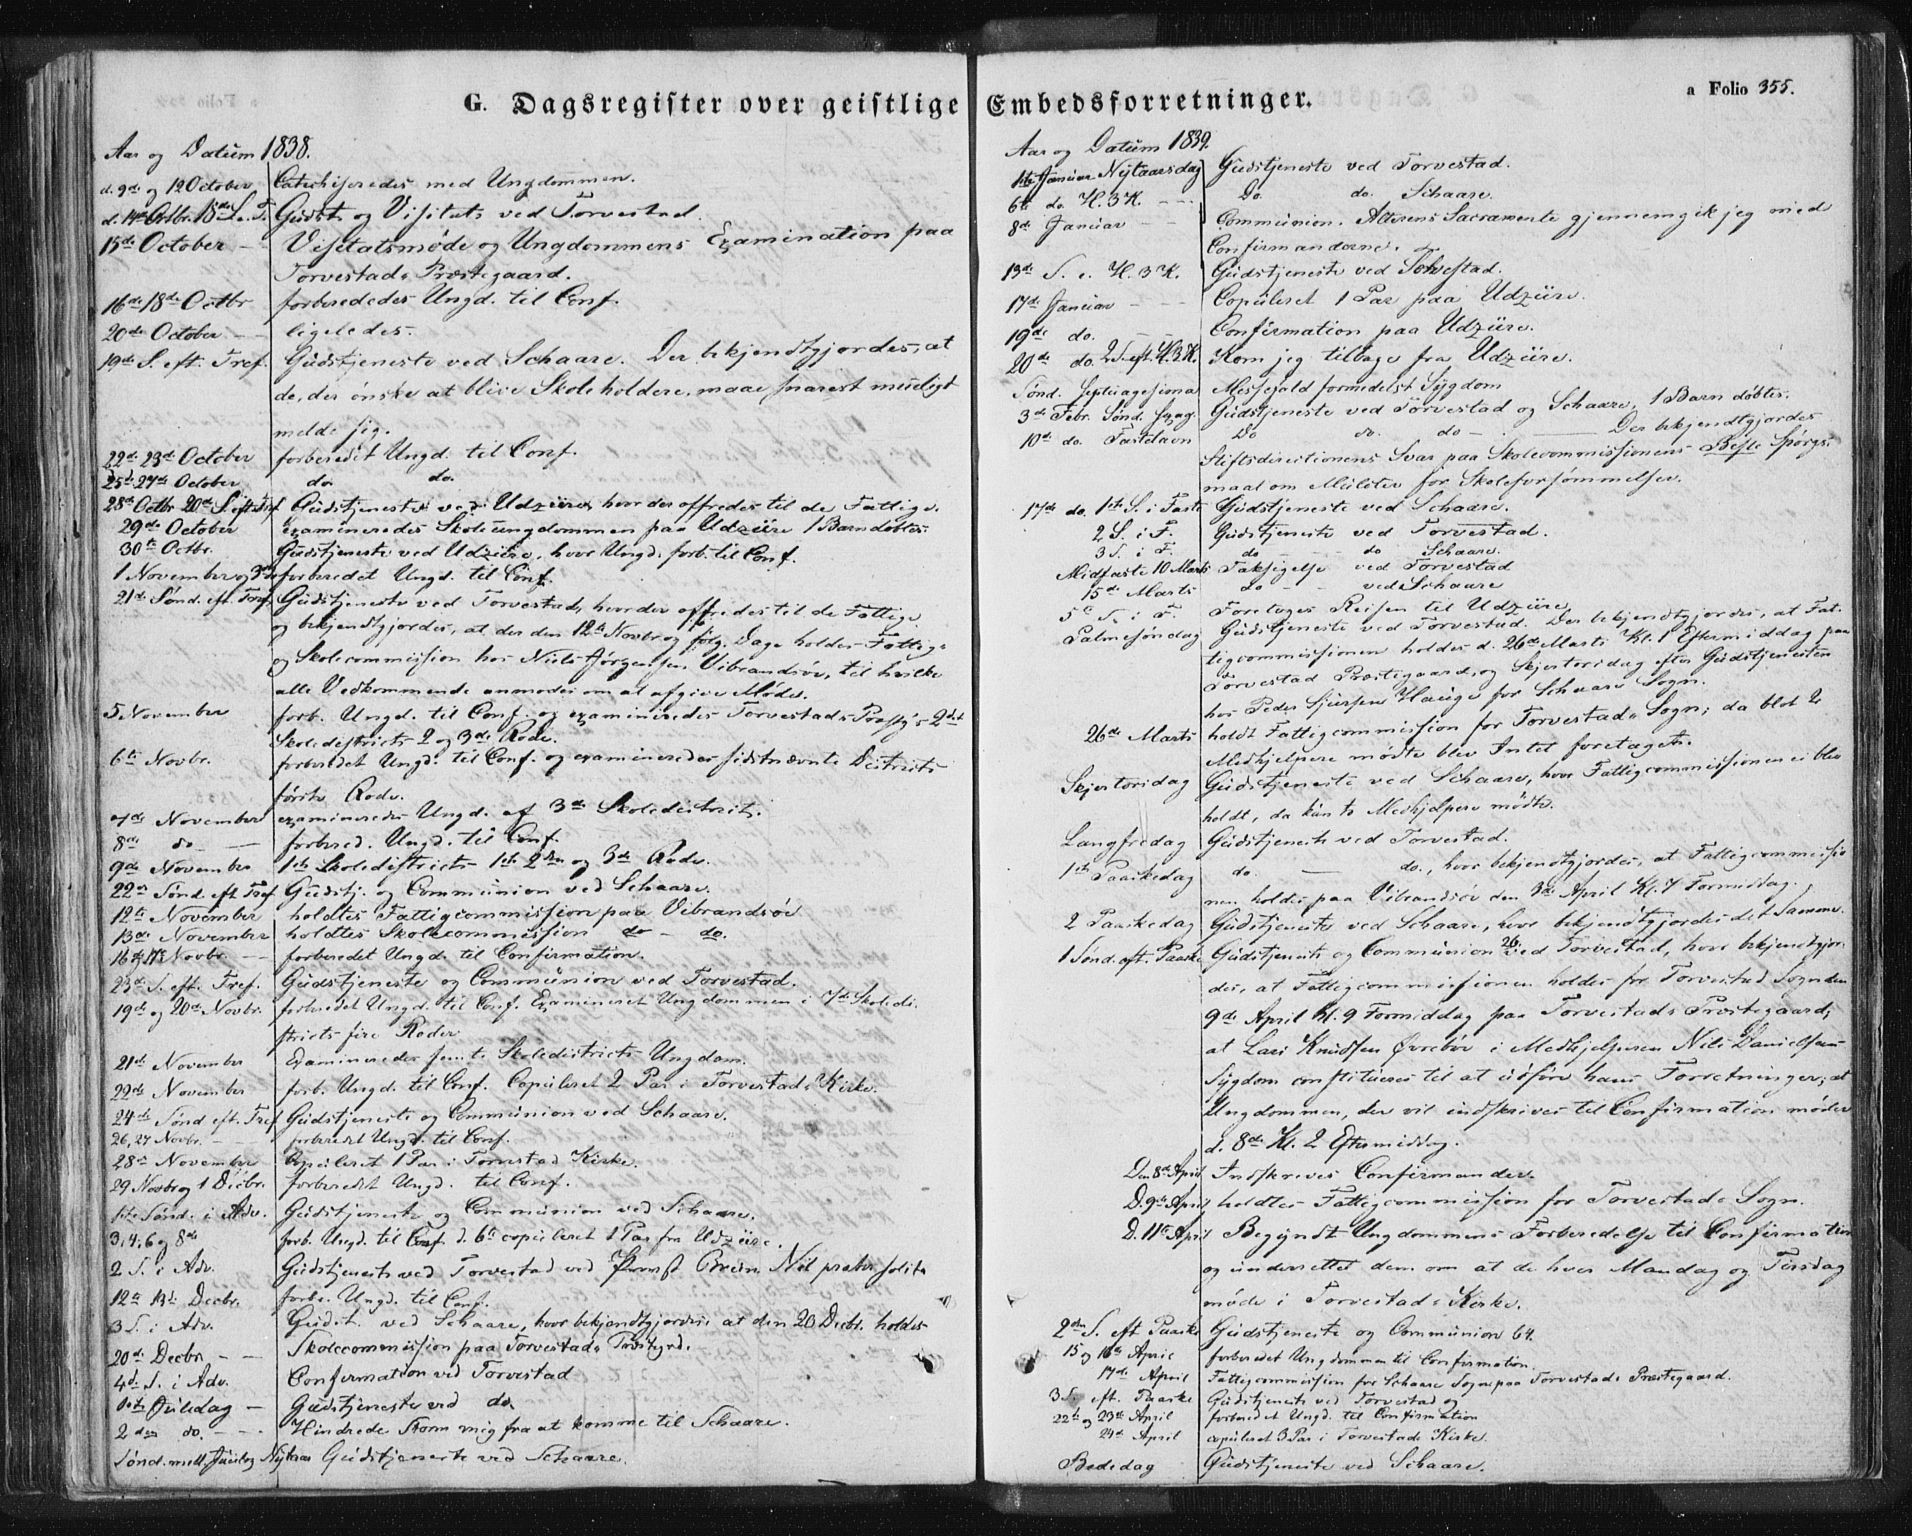 G. Dagsregister over geistlige Embedsforretninger.
a Folio 355.
Aar og Datum 1838.
d. 9de og 12 October Catechiseredes med Ungdommen.
d. 14de Octbr. 18de S. e. T. Gudst. og Visitats ved Torvestad.
15de October - Visitatsmøde og Ungdommens Examination paa
Torvestads Præstegaard.
16de 18de Octbr forberededes Ungd. til Conf.
20de October -- ligeledes.
19de S. eft. Tref. Gudstjeneste ved Schaare. Der bekjendtgjordes, at
de, der ønske at blive Skoleholdere, maae snarest mueligt
melde sig.
22de 23de October forberedet Ungd. til Conf.
25de 27de October do. do.
28de Octbr 20de S. eft. Tref. Gudstjeneste ved Udzüre, hvor der offredes til de Fattige.
29de October examineredes Skoleungdommen paa Udzüre 1 Barn døbtes.
30te Octbr. Gudstjeneste ved Udzüre, hvor Ungd. forb. til Conf.
1 November og 3de forberedet Ungd. til Conf.
21de Sønd. eft. Tref. Gudstjeneste ved Torvestad, hvor der offredes til de Fattige
og bekjendtgjordes, at der den 12te Novbr og følg. Dage holdes Fattig-
og Skolecommission hos Niels Jørgensen Vibrandsøe, til hvilke
alle Vedkommende anmodes om at afgive Møde.
5 November forb. Ungd. til Conf. og examineredes Torvestads Præstgs 2det
Skoledistricts 2 og 3de Rode.
6te Novbr. forberedet Ungd. til Conf. og examineredes sidstnævnte Districts
første Rode.
7de November examineredes Ungd. af 3de Skoledistrict.
8de do - forbered. Ungd. til Conf.
9de November 1ste Skoledistricts 1ste 2den og 3de Rode.
22de Sønd. eft Tref Gudstj. og Communion ved Schaare.
12te November holdtes Fattigcommission paa Vibrandsøe
13de November holdtes Skolecommission do - do.
16 og 17de Novbr. -- forberedet Ungd. til Confirmation.
23de S. eft. Tref. Gudstjeneste og Communion ved Torvestad.
19de og 20de Novbr. forberedet Ungd. til Conf. Examineret Ungdommen i 7de Skoledi-
stricts fire Roder
21de November Examineredes femte Skoledistricts Ungdom.
22de November forb. Ungd. til Conf. Copuleret 2 Par i Torvestads Kirke.
24de Sønd eft. Tref Gudstjeneste og Communion ved Schaare.
26, 27 Novbr. - forberedet Ungd. til Conf.
28de November Copuleret 1 Par i Torvestad Kirke.
29 Novbr og 1 Decbr. forberedet Ungd. til Conf.
1ste Sønd. i Adv. Gudstjeneste og Communion ved Schaare.
3, 4, 6 og 8de forb. Ungd. til Conf d. 6te copuleret 1 Par fra Udzüre.
2 S. i Adv. Gudstjeneste ved Torvestad ved Provst Nil præter solita
12te 13de Decbr. forbe. Ungd. til Conf.
3 S. i Adv. Gudst. ved Schaare, hvor bekjendtgjordes at den 20 Decbr. holdes
20de Decbr. -- Skolecommission paa Torvestads Præstegrd.
4de S. i Adv. Confirmation ved Torvestad
1ste Juledag - Gudstjeneste ved do.
2den do. -- Hindrede Storm mig fra at komme til Schaare.
Sønd. mell. Juul og Nytaar Gudstjeneste ved Schaare.
Aar og Datum 1839.
1ste Januar Nytaarsdag Gudstjeneste ved Torvestad.
6te do. H. 3 K. -- Do. do. Schaare.
8de Januar - Communion. Alterens Sacramente gjennemgik jeg med
Confirmanderne.
13de S. e. H. 3 K. Gudstjeneste ved Torvestad.
17de Januar -- Copuleret 1 Par paa Udzüre.
19de do. -- Confirmation paa Udzüre.
20de do. 2 S. eft. H. 3 K. Kom jeg tilbage fra Udzüre.
Sønd. Septuagesima Messefald formedelst Sygdom
3de Febr. Sønd. Sexag. Gudstjeneste ved Torvestad og Schaare, 1 Barn døbtes.
10de do. Fastelavn Do do. do - Der bekjendtgjordes
Stiftsdirectionens Svar paa Skolecommissionens Spørgs-
maal om Mulcter for Skoleforsømmelser.
17de do. 1ste S. i Faste Gudstjeneste ved Schaare.
2 S. i F. Gudstjeneste ved Torvestad.
3 S. i F. do - - do Schaare.
Midfaste 10 Marts Taksigelse ved Torvestad
15de Marts do - - ved Schaare
5te S. i F. Foretages Reisen til Udzüre
Palmesøndag Gudstjeneste ved Torvestad. Der bekjendtgjordes, at Fat-
tigcommissionen holdes d. 26de Marts Kl. 1 Eftermiddag paa
Torvestad Præstegaard, og Skjertorsdag efter Gudstjenesten
hos Peder Sjursen Hauge for Schaare Sogn.
26de Marts holdt Fattigcommission for Torvestads Sogn; da blot 2
Medhjelpere mødte blev Intet foretaget.
Skjertorsdag Gudstjeneste ved Schaare, hvor Fattigcommissionen ei blev
holdt, da kun to Medhjelpere mødte.
Langfredag Gudstjeneste ved Torvestad.
1ste Paaskedag do. - do., hvor bekjendtgjordes, at Fattigcommissio
nen holdes paa Vibrandsøe den 3de April Kl. 7 Formiddag.
2 Paaskedag Gudstjeneste ved Schaare, hvor bekjendtgjordes det Samme.
1 Sønd. eft. Paaske Gudstjeneste og Communion 26. ved Torvestad, hvor bekjendtgjor-
des, at Fattigcommissionen holdes for Torvestad Sogn den
9de April Kl. 9 Formiddag paa Torvestads Præstegaard;
at Lars Knudsen Øvrebøe i Medhjelperen Nils Danielsens
Sygdom constitueres til at udføre hans Forretninger; at
Ungdommen, der vil indskrives til Confirmation møder
d. 8de Kl. 2 Eftermiddag.
Den 8de April Indskreves Confirmander.
D. 9de April holdtes Fattigcommission for Torvestads Sogn.
D. 11te April Begyndt Ungdommens Forberedelse til Confirmation
og underrettet dem om at de hver Mandag og Tirsdag
møde i Torvestads Kirke.
2den S. eft Paaske Gudstjeneste og Communion 64.
15 og 16te April forberedet Ungdommen til Confirmation.
17de April Fattigcommission for Schaare Sogn paa Torvestads Præstegaard.
3 S. eft. Paaske Gudstjeneste ved Torvestad og
22de og 23de April forberedet Ungd. til Confirmation
24de April copuleret 3 Par i Torvestads Kirke.
Bededag Gudstjeneste ved Schaare.